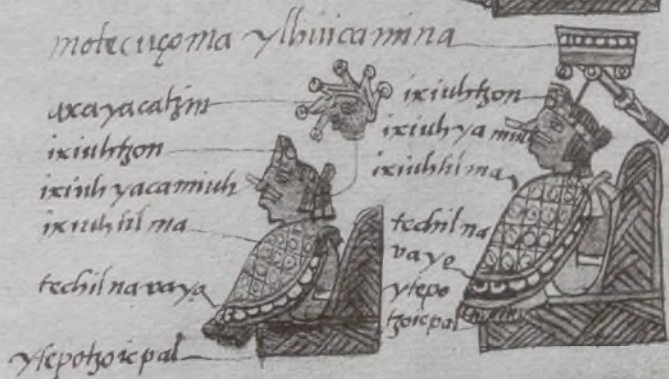 motecuçoma ylhuicamina
axayacatzin
ixiuhtzon
ixiuh yacamiuh
ixiuhtilma
techilnavaya
ytepotzoicpal
ixiuhtzon
ixiuh ya miuh
ixiuhti ma
techil na
vaya
ytepo
tzoicpal